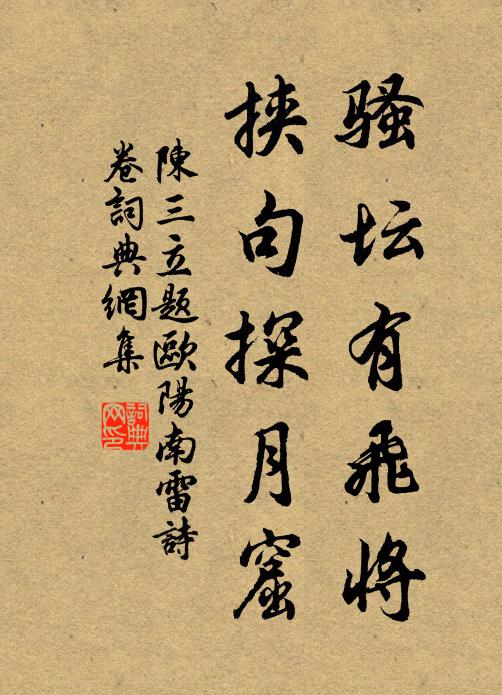 骚坛有飛將
挟句探月窟
陳三立题歐陽南雷詩
卷詞典網集
詞典网印